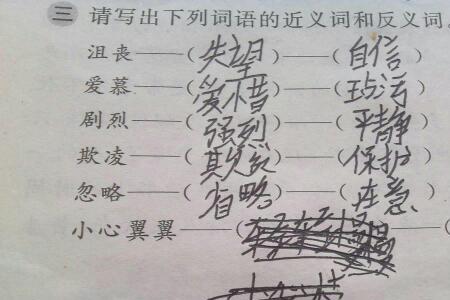 三 请写出下列词语的近义词和反义词。
沮丧——(失望)——(自信)
爱慕——(爱惜)——(玷污)
剧烈——(强烈)——(平静)
欺凌——(欺负)——(保护)
忽略——(省略)——(在意)
小心翼翼——(
——(